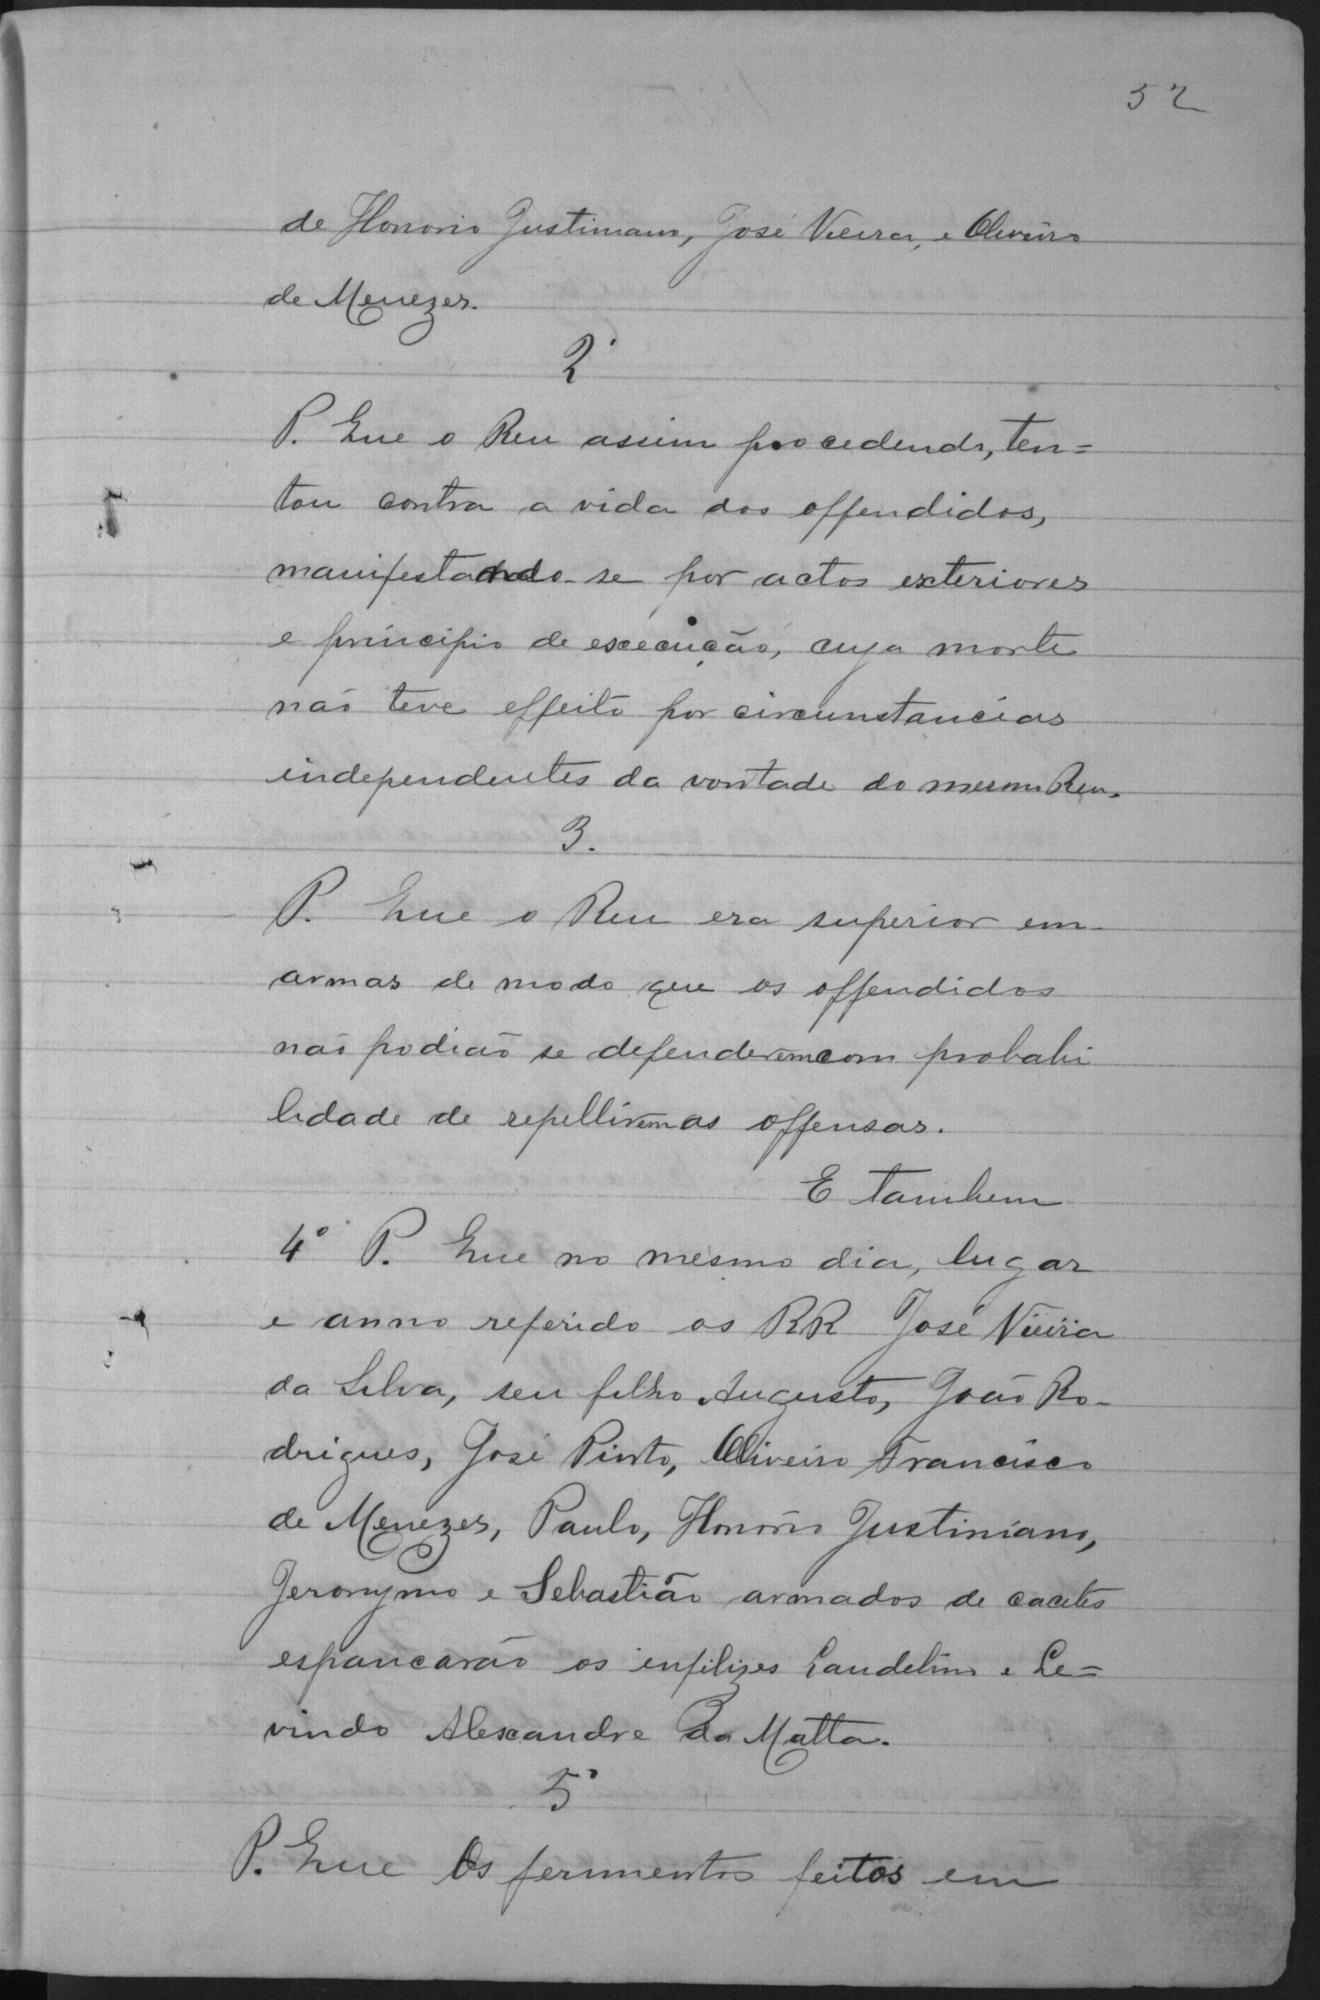 52
de Honorio Justiniano, José Vieira, e Oliveiro
de Menezes.
2º
P. Que o Reu assim procedendo, ten=
tou contra a vida dos offendidos,
manifestando-se por actos exteriores
e principio de execução, cuja morte
não teve effeito por circunstancias
independentes da vontade do mesmo Reu.
3.
P. Que o Reu era superior em
armas de modo que os offendidos
não podião se defenderem com probabi
lidade de repellirem as offensas.
E tambem
4º P. Que no mesmo dia, lugar
e anno referido os RR José Vieira
da Silva, seu filho Augusto, João Ro-
drigues, José Pinto, Oliveiro Francisco
de Menezes, Paulo, Honorio Justiniano,
Jeronymo e Sebastião armados de cacetes
espancarão os infilizes Laudelino e Le=
vindo Alexandre da Matta.
5º
P. Que Os ferimentos feitos em